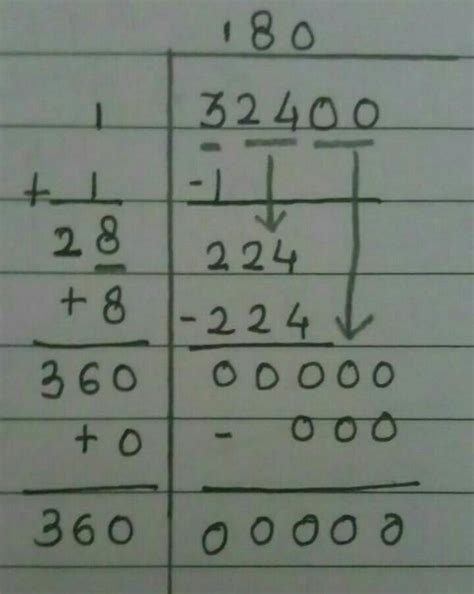 180
1 32400
+ 1 -1
28 224
+8 -224
360 00000
+0 - 000
360 00000